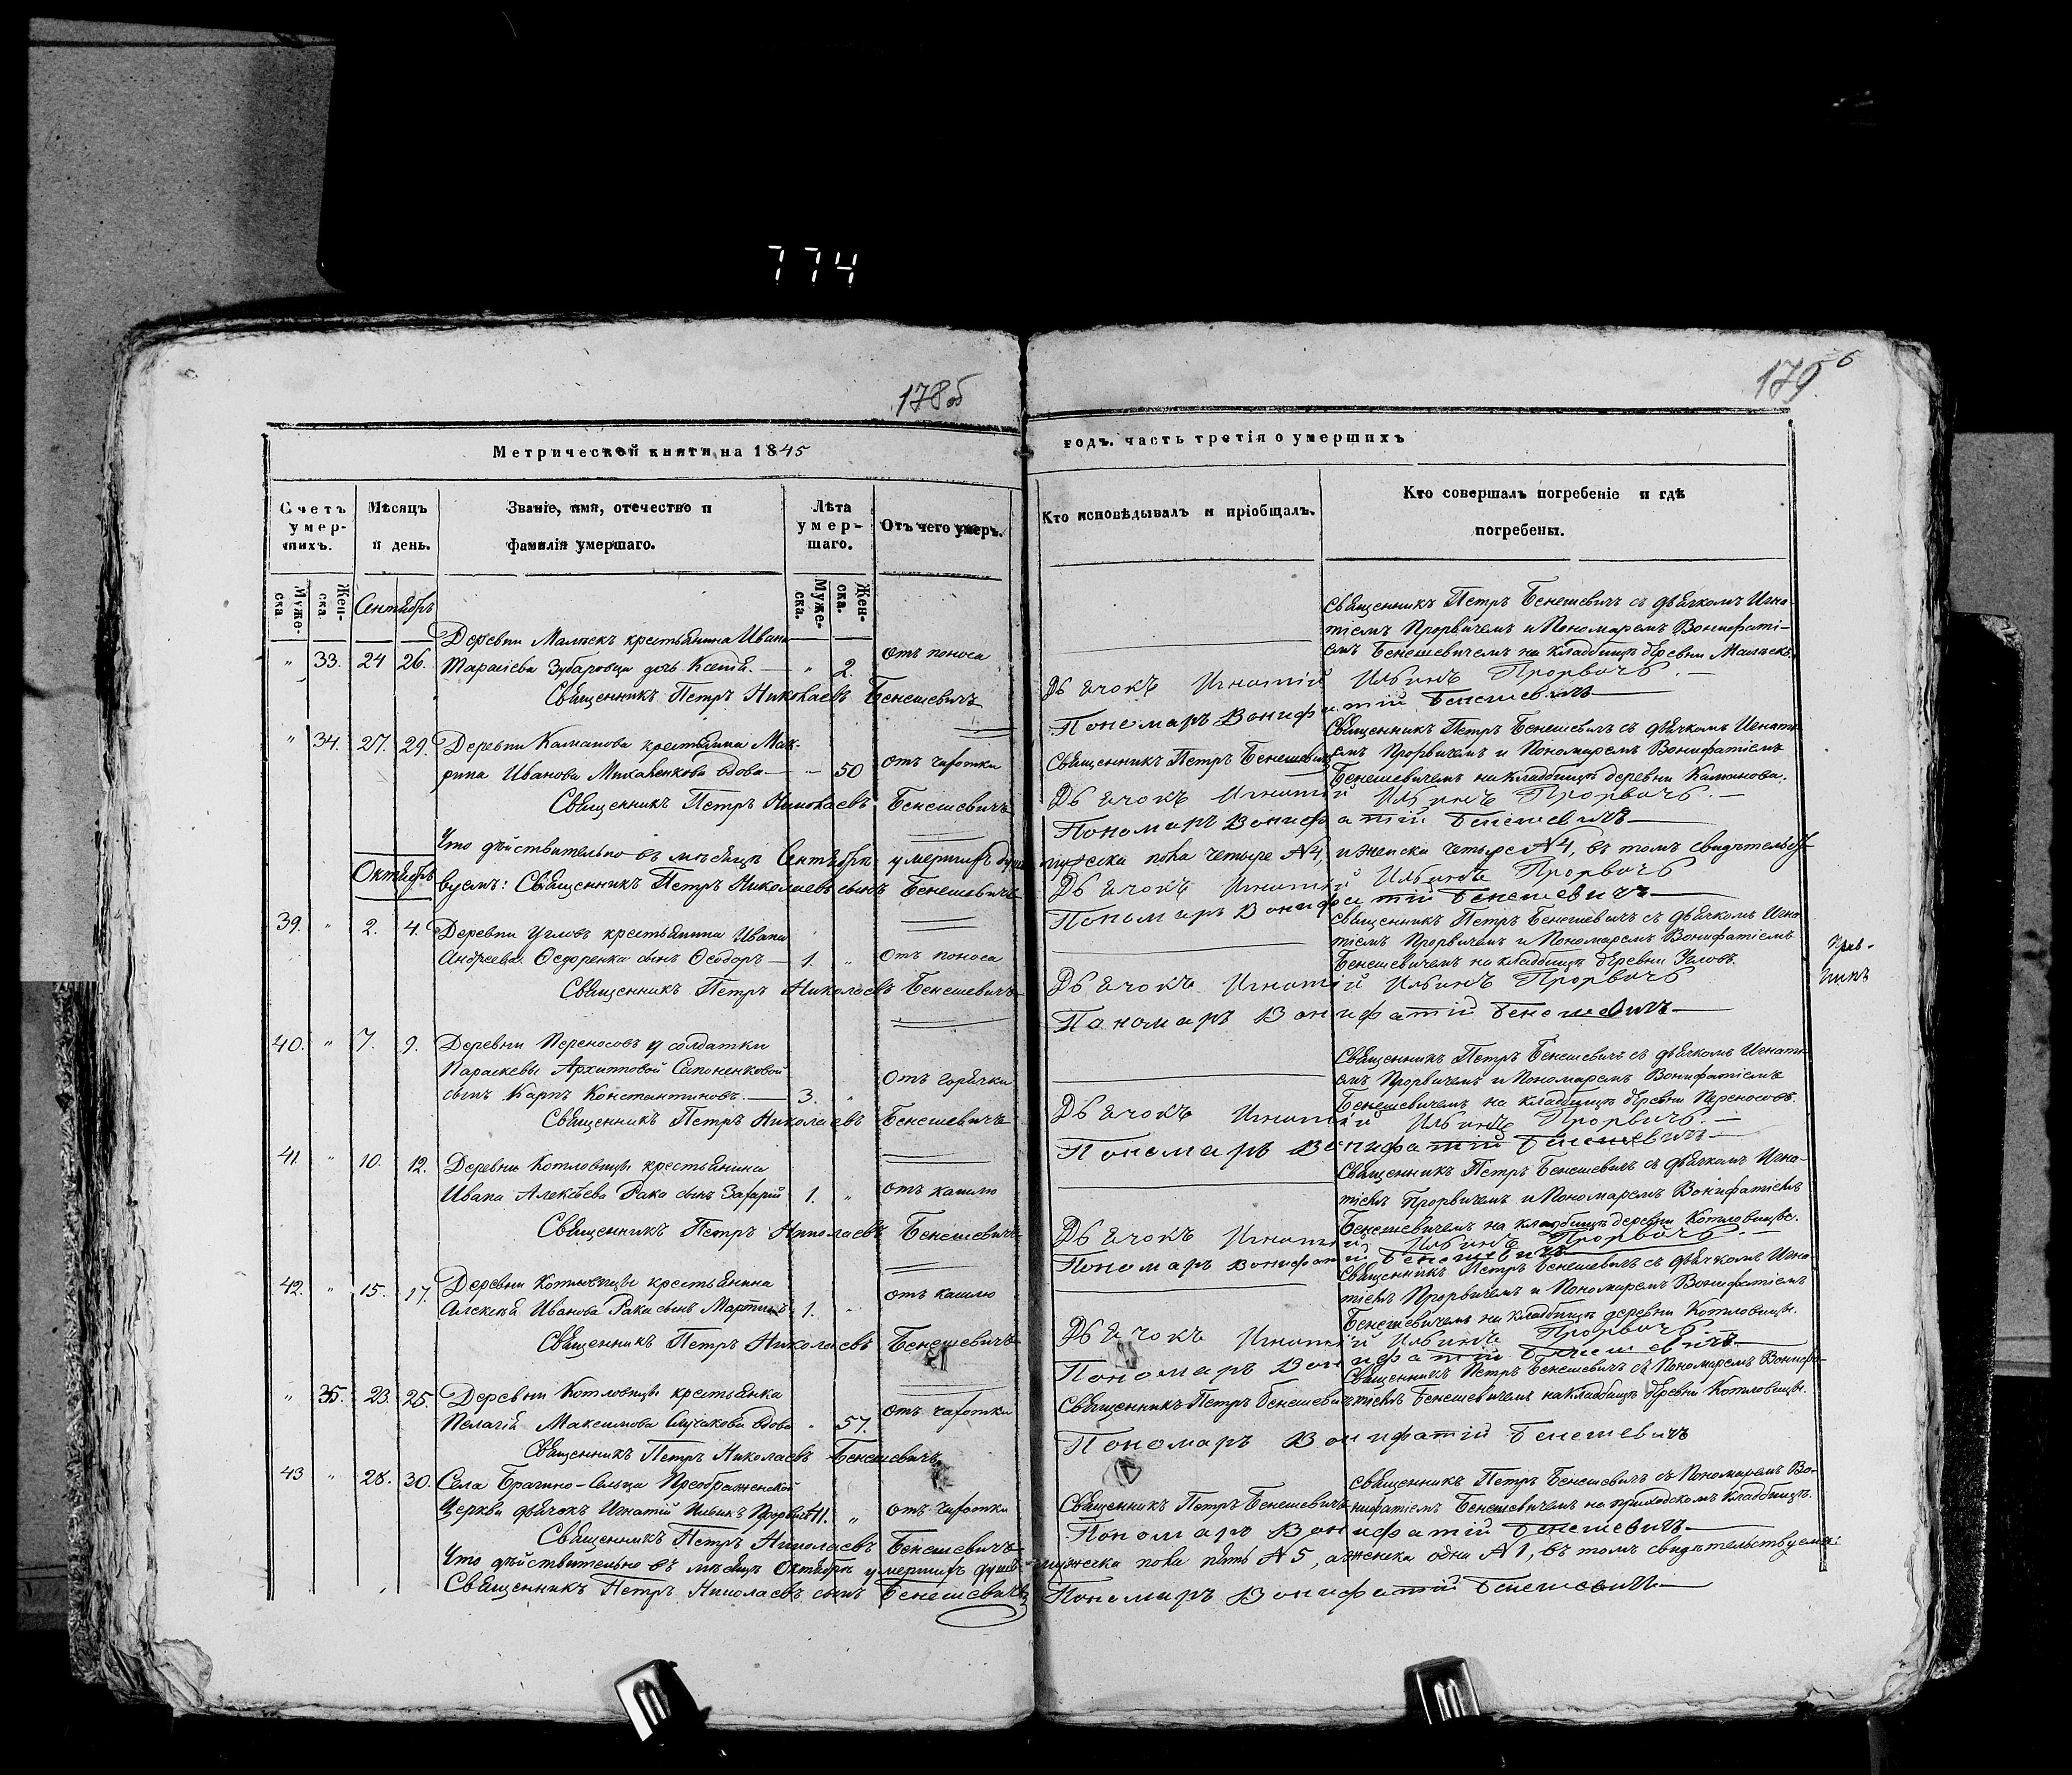 774
178об
179
6
Метрической книги на 1845
годъ. часть третія о умершихъ
Счетъ умер-шихъ.
Мѣсяцъ и день.
Званіе, имя, отечество и фамилія умершаго.
Лѣта умер-шаго.
Отъ чего умеръ.
Кто исповѣдывалъ и пріобщалъ.
Кто совершалъ погребеніе и гдѣ погребены.
Муже-ска
Жен-ска
Сентябрь
Муже-ска.
Жен-ска.
Священникъ Петръ Бенешевичъ съ дьячкомъ Игна-
тіемъ Прорвичемъ и Пономаремъ Вонифаті-
емъ Бенешевичемъ на кладбищѣ деревни
Деревни крестьянина Ивана
" 33. 24 26. Тарасіева Зубаровца дочь Ксенія. — " 2. отъ поноса
Священникъ Петръ Николаевъ Бенешевичъ
Дьячокъ Игнатій Ильинъ Прорвичъ. —
Пономаръ Вонифатій Бенешевичъ —
Священникъ Петръ Бенешевичъ съ дьячкомъ Игнаті-
" 34. 27. 29. Деревни Каманова крестьянка Мак-
емъ Прорвичемъ и Пономаремъ Вонифатіемъ
рина Иванова вдова — " 50 отъ чахотки Священникъ Петръ Бенешевичъ
Бенешевичемъ на кладбищѣ деревни Каманова.
Священникъ Петръ Николаевъ Бенешевичъ
Дьячокъ Игнатій Ильинъ Прорвичъ. —
Пономаръ Вонифатій Бенешевичъ —
Что дѣйствительно въ мѣсяцѣ Сентябрѣ умершихъ душъ мужеска пола четыре №4, и женска четыре №4, въ томъ свидѣтельст-
Октябрь
вуемъ: Священникъ Петръ Николаевъ сынъ Бенешевичъ
Дьячокъ Игнатій Ильинъ Прорвичъ
Пономаръ Вонифатій Бенешевичъ —
39. " 2. 4. Деревни Угловъ крестьянина Ивана
Священникъ Петръ Бенешевичъ съ дьячкомъ Игна-
тіемъ Прорвичемъ и Пономаремъ Вонифатіемъ
Андреева Ѳедоренка сынъ Ѳеодоръ — 1. " отъ поноса
Бенешевичемъ на кладбищѣ деревни Угловъ.
Священникъ Петръ Николаевъ Бенешевичъ
Дьячокъ Игнатій Ильинъ Прорвичъ
Пономаръ Вонифатій Бенешевичъ —
40. " 7. 9. Деревни Переносовъ у солдатки
Священникъ Петръ Бенешевичъ съ дьячкомъ Игнаті-
Параскевы Архипповой Сапоненковой
емъ Прорвичемъ и Пономаремъ Вонифатіемъ
сынъ Карпъ Константиновъ. — 3. " Отъ горячки
Бенешевичемъ на кладбищѣ деревни Переносовъ.
Священникъ Петръ Николаевъ Бенешевичъ
Дьячокъ Игнатій Ильинъ Прорвичъ. —
Пономаръ Вонифатій Бенешевичъ —
41. " 10. 12. Деревни Котловицы крестьянина
Священникъ Петръ Бенешевичъ съ дьячкомъ Игна-
Ивана Алексѣева Рака сынъ Захарій 1. " отъ кашлю
тіемъ Прорвичемъ и Пономаремъ Вонифатіемъ
Бенешевичемъ на кладбищѣ деревни Котловицы.
Священникъ Петръ Николаевъ Бенешевичъ
Дьячокъ Игнатій Ильинъ Прорвичъ. —
Пономаръ Вонифатій Бенешевичъ
42. " 15. 17. Деревни Котловицы крестьянина
Священникъ Петръ Бенешевичъ съ дьячкомъ Игна-
Алексѣя Иванова Рака сынъ Мартинъ 1. " отъ кашлю
тіемъ Прорвичемъ и Пономаремъ Вонифатіемъ
Бенешевичемъ на кладбищѣ деревни Котловицы.
Священникъ Петръ Николаевъ Бенешевичъ
Дьячокъ Игнатій Ильинъ Прорвичъ
Пономаръ Вонифатій Бенешевичъ
" 35. 23. 25. Деревни Котловицы крестьянка
Священникъ Петръ Бенешевичъ съ Пономаремъ Вонифа-
Пелагія Максимова вдова " 57. отъ чахотки Священникъ Петръ Бенешевичъ
тіемъ Бенешевичемъ на кладбищѣ деревни Котловицы.
Священникъ Петръ Николаевъ Бенешевичъ
Пономаръ Вонифатій Бенешевичъ
43 " 28. 30. Села Брагино-Сельца Преображенской
Священникъ Петръ Бенешевичъ съ Пономаремъ Во-
Церкви дьячокъ Игнатій Ильинъ Прорвичъ 41. " отъ чахотки Священникъ Петръ Бенешевичъ
нифатіемъ Бенешевичемъ на приходскомъ кладбищѣ.
Священникъ Петръ Николаевъ Бенешевичъ
Пономаръ Вонифатій Бенешевичъ —
Что дѣйствительно въ мѣсяцѣ Октябрѣ умершихъ душъ мужеска пола пять №5, а женска одна №1, въ томъ свидѣтельствуемъ:
Священникъ Петръ Николаевъ сынъ Бенешевичъ
Пономаръ Вонифатій Бенешевичъ —